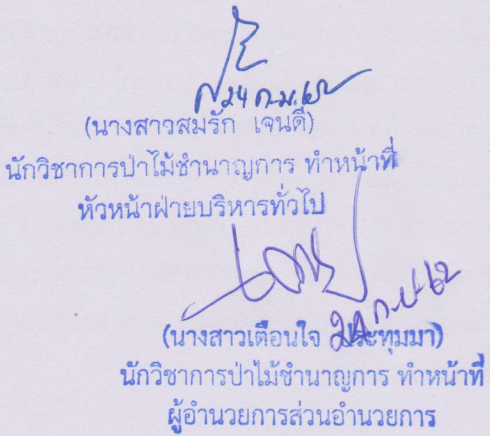 24 ก.ย. 62
(นางสาวสมรัก เจนดี)
นักวิชาการป่าไม้ชำนาญการ ทำหน้าที่
หัวหน้าฝ่ายบริหารทั่วไป
24 ก.ย. 62
(นางสาวเตือนใจ ประทุมมา)
นักวิชาการป่าไม้ชำนาญการ ทำหน้าที่
ผู้อำนวยการส่วนอำนวยการ